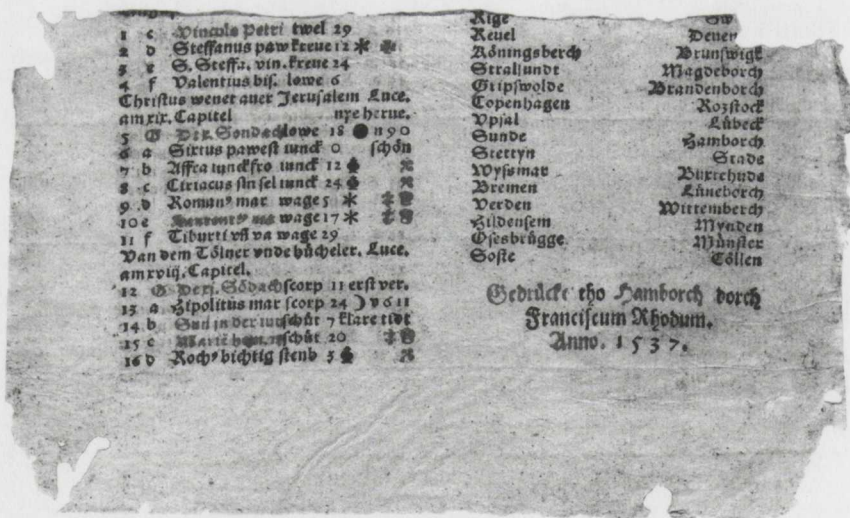 1 c Vincula Petri twel 29
2 d Steffanus paw kreue 12 * *
3 e S. Steffa. vin. kreue 24
4 f Valentius bis. lowe 6
Christus wenet auer Jerusalem Luce.
am xix. Capitel nye herue.
5 G Der x. Sondach lowe 18 ● n 9 0
6 a Sixtus pawest iunck 0 schön
7 b Affra iunckfro iunck 12
8 c Ciriacus sin sel iunck 24
9 d Romanꝰ mar wage 5 *
10 e wage 17 *
11 f Tiburti vñ va wage 29
Van dem Tölner vnde bücheler. Luce.
am xviij. Capitel.
12 G Der xj. Sōdach scorp 11 erst ver.
13 a Hipolitus mar scorp 24 ☽ v 6 11
14 b Sun in der iun schüt 7 klare tidt
15 c Marie schüt 20
16 d Rochꝰ bichtig stenb 3
Rige
Reuel
Köningsberch
Stralsundt
Gripswolde
Copenhagen
Vpsal
Sunde
Stettyn
Wyssmar
Bremen
Verden
Hildensem
Osesbrügge
Soste
Sw
Deneu
Brunswigk
Magdeborch
Brandenborch
Rozstock
Lübeck
Hamborch
Stade
Buxtehude
Lüneborch
Wittemberch
Mynden
Münster
Cöllen
Gedrückt tho Hamborch dorch
Franciscum Rhodum.
Anno. 1537.